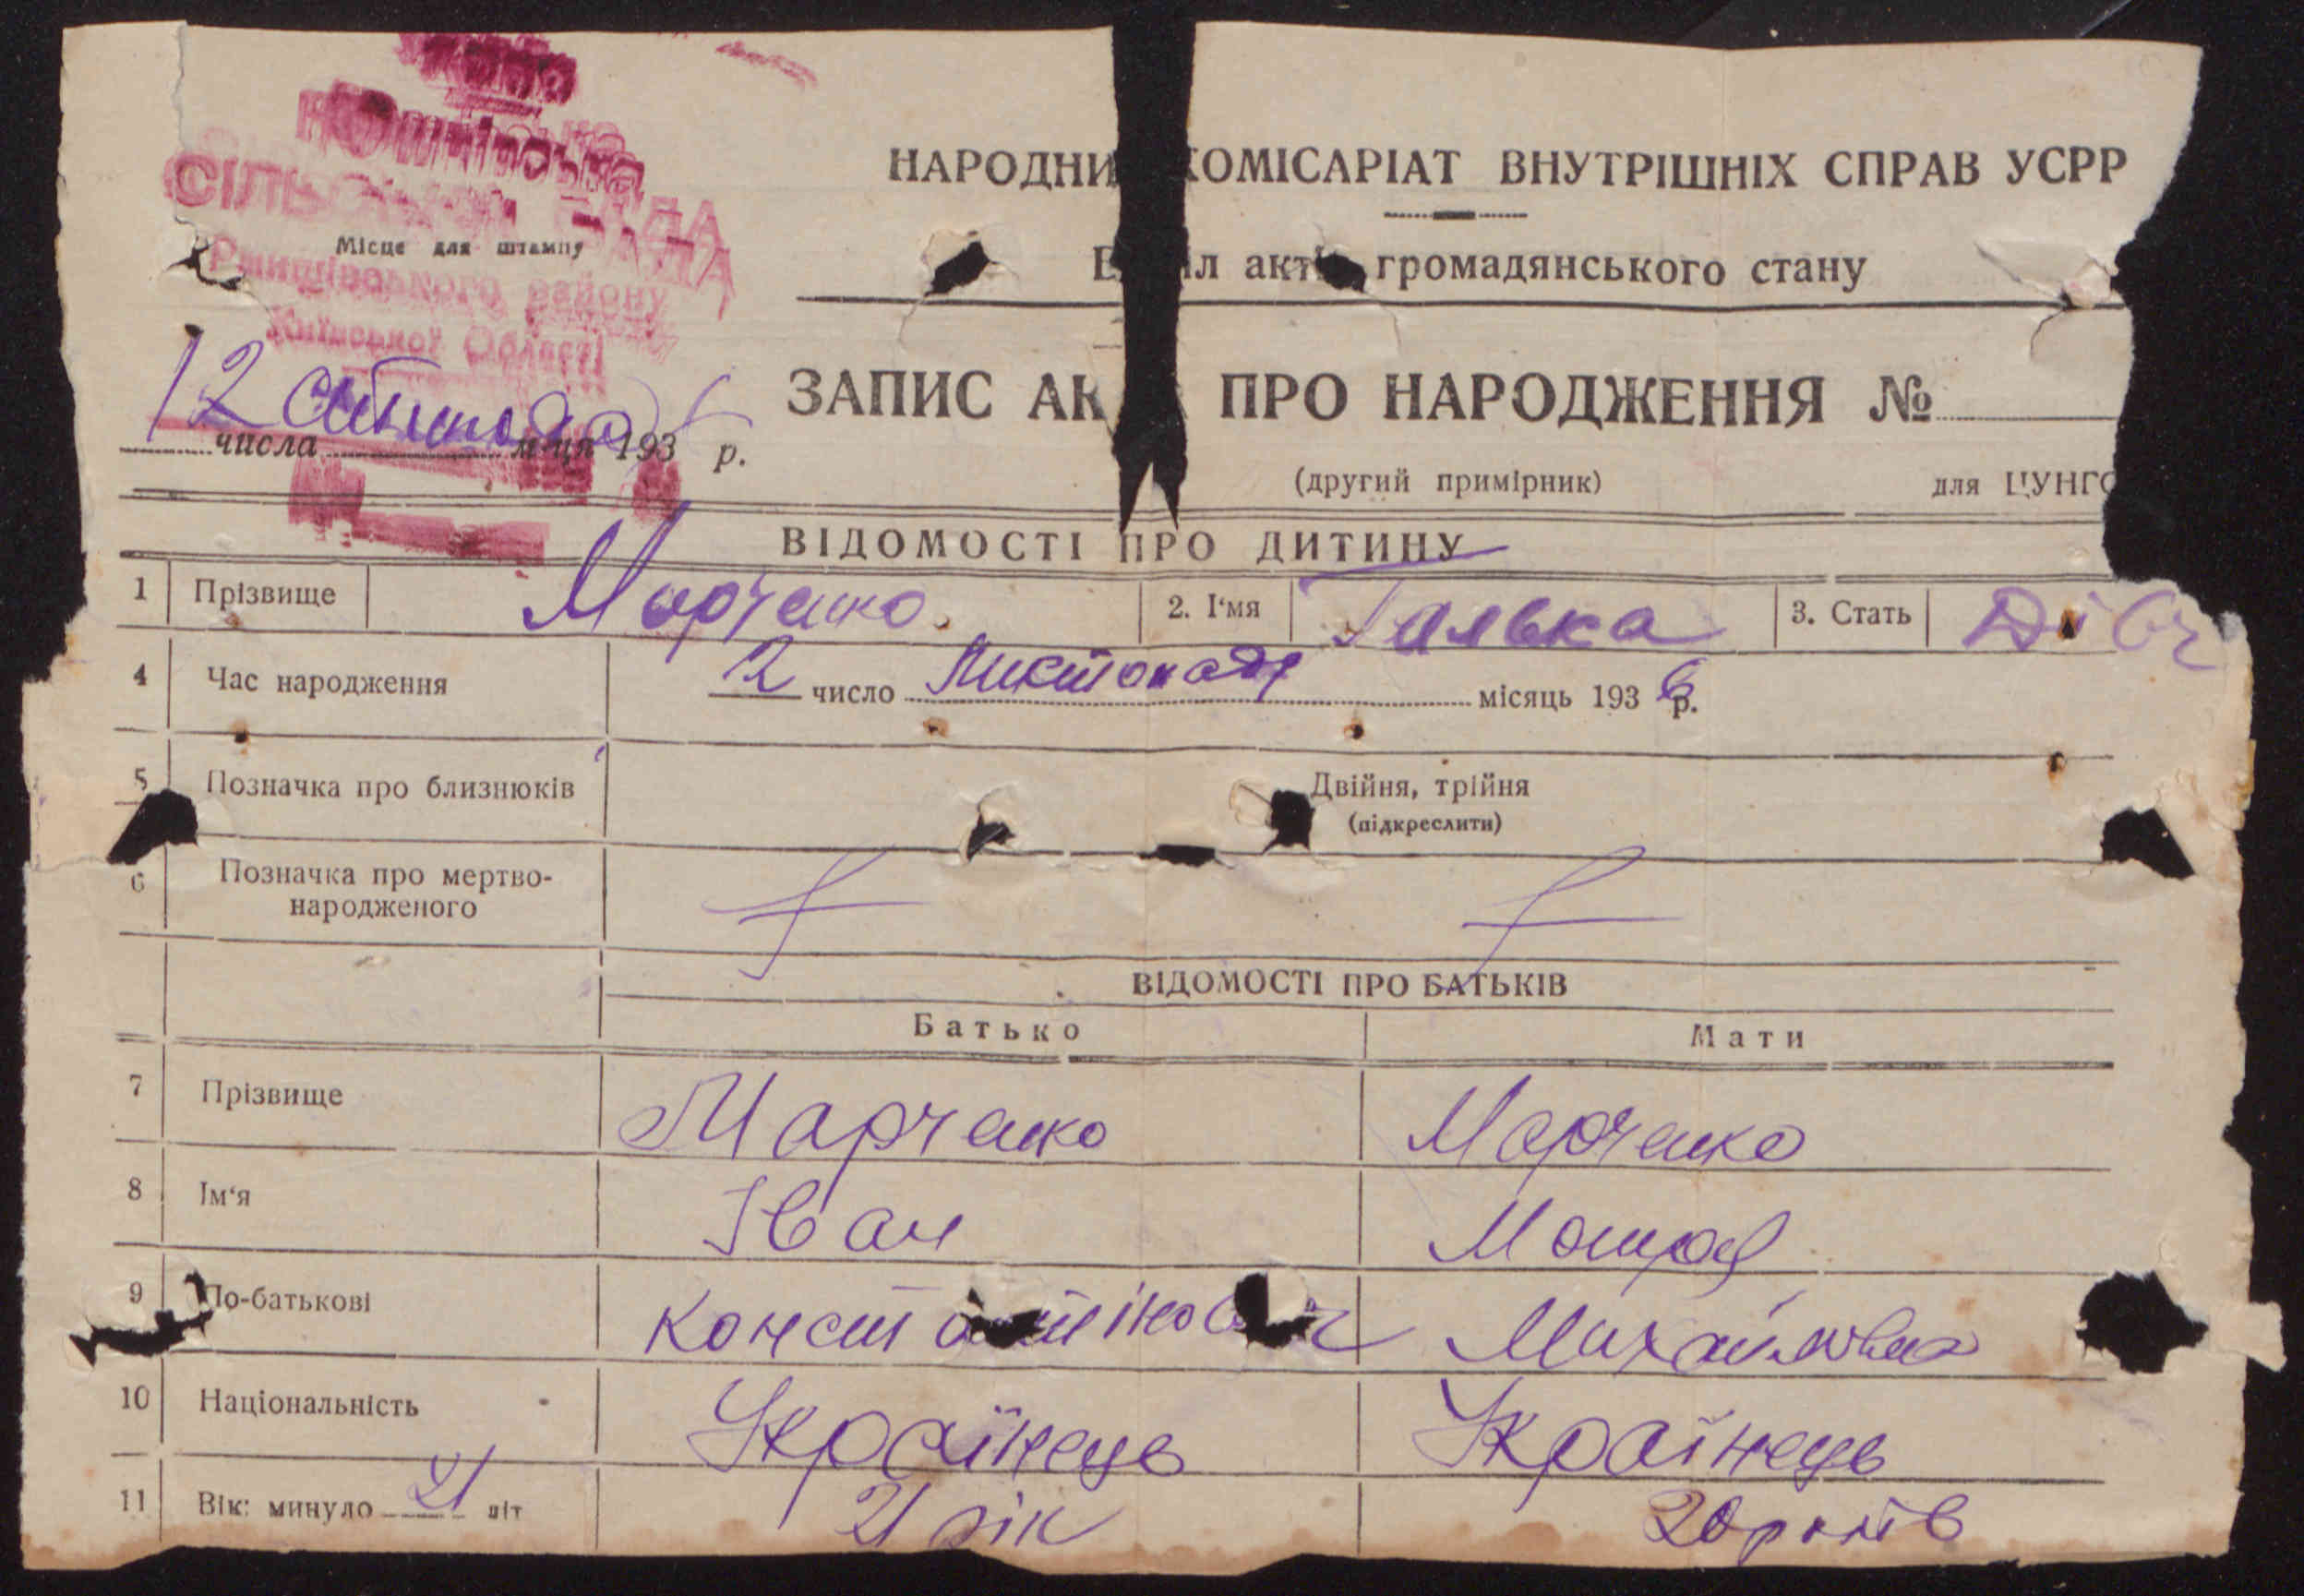 СІЛЬСЬКА РАДА
Місце для штампу
Ржищівського району
Київської Області
НАРОДНИ КОМІСАРІАТ ВНУТРІШНІХ СПРАВ УСРР
В іл актів громадянського стану
12 числа м-ця 193 р.
ЗАПИС АК ПРО НАРОДЖЕННЯ №
(другий примірник) для ЦУНГО
ВІДОМОСТІ ПРО ДИТИНУ
1 Прізвище Марченко. 2. І'мя Галька 3. Стать Дівч
4 Час народження 2 число Листопада місяць 1936 р.
5 Позначка про близнюків Двійня, трійня
(підкреслити)
6 Позначка про мертво-
народженого
ВІДОМОСТІ ПРО БАТЬКІВ
Батько Мати
7 Прізвище Марченко Марченко
8 Ім'я Іван Мотря
9 По-батькові Константінович Михайловна
10 Національність Українець Українець
11 Вік: минуло 21 літ 21 рік 20 років